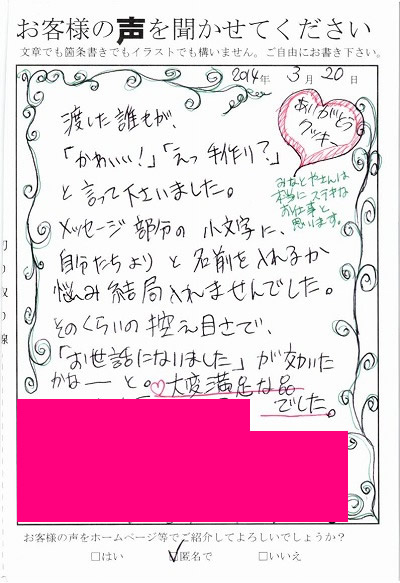 お客様の声を聞かせてください
文章でも箇条書きでもイラストでも構いません。ご自由にお書き下さい。
2014年 3月 20日
ありがとう
クッキー
渡した誰もが、
「かわいい!」「えっ 手作り?」
と言って下さいました。
みなとやさんは
本当にステキな
お仕事と
思います。
メッセージ部分の 小文字に、
自分たちより と 名前を入れるか
悩み 結局入れませんでした。
そのくらいの控え目さで、
「お世話になりました」が効いた
かなー と。♡大変満足な品
でした。
切り取り線
お客様の声をホームページ等でご紹介してよろしいでしょうか?
□はい ☑匿名で □いいえ